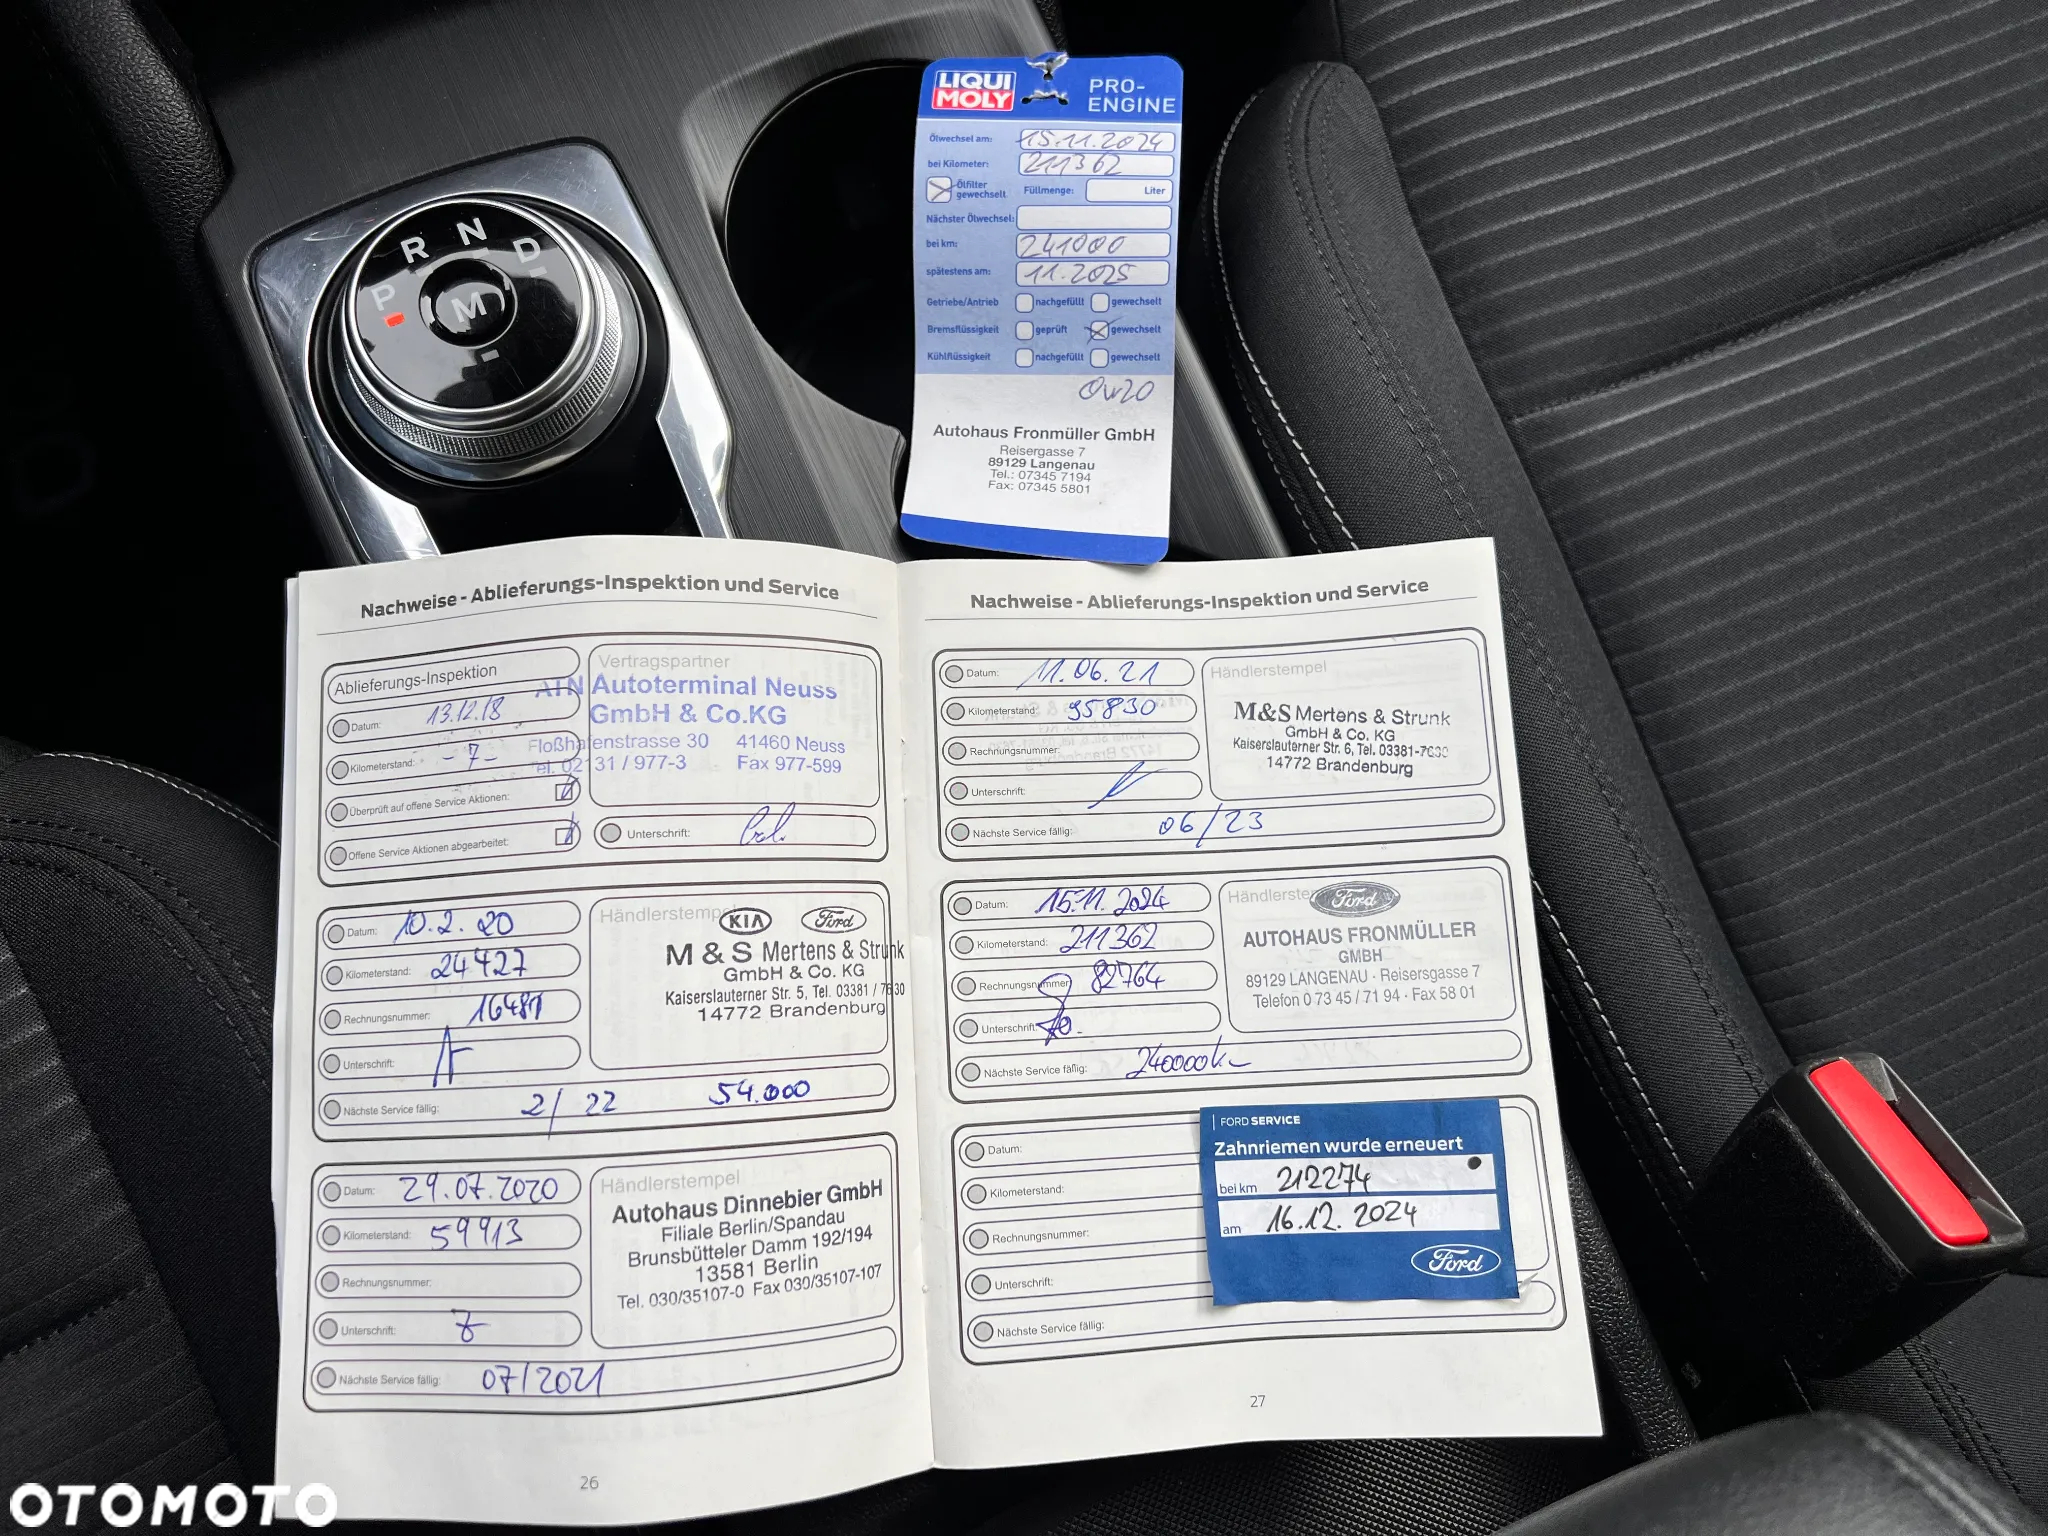 LIQUI
MOLY
PRO-
ENGINE
Ölwechsel am: 15.11.2024
bei Kilometer: 211362
Ölfilter
gewechselt
Füllmenge: Liter
Nächster Ölwechsel:
bei km: 241000
spätestens am: 11.2025
Getriebe/Antrieb nachgefüllt gewechselt
Bremsflüssigkeit geprüft gewechselt
Kühlflüssigkeit nachgefüllt gewechselt
0w20
Autohaus Fronmüller GmbH
Reisergasse 7
89129 Langenau
Tel.: 07345 7194
Fax: 07345 5801
P R N D
M
Nachweise - Ablieferungs-Inspektion und Service
Ablieferungs-Inspektion
Datum: 13.12.18
Kilometerstand: - 7 -
Überprüft auf offene Service Aktionen:
Offene Service Aktionen abgearbeitet:
Vertragspartner
ATN Autoterminal Neuss
GmbH & Co.KG
Floßhafenstrasse 30 41460 Neuss
Tel. 02131 / 977-3 Fax 977-599
Unterschrift:
Datum: 10.2.20
Kilometerstand: 24427
Rechnungsnummer:
Unterschrift:
Nächste Service fällig: 2/22 54.000
Händlerstempel
KIA Ford
M & S Mertens & Strunk
GmbH & Co. KG
Kaiserslauterner Str. 5, Tel. 03381 / 7630
14772 Brandenburg
Datum: 29.07.2020
Kilometerstand: 59913
Rechnungsnummer:
Unterschrift:
Nächste Service fällig: 07/2021
Händlerstempel
Autohaus Dinnebier GmbH
Filiale Berlin/Spandau
Brunsbütteler Damm 192/194
13581 Berlin
Tel. 030/35107-0 Fax 030/35107-107
26
Nachweise - Ablieferungs-Inspektion und Service
Datum: 11.06.21
Kilometerstand: 95830
Rechnungsnummer:
Unterschrift:
Nächste Service fällig: 06/23
Händlerstempel
M&S Mertens & Strunk
GmbH & Co. KG
Kaiserslauterner Str. 6, Tel. 03381-7630
14772 Brandenburg
Datum: 15.11.2024
Kilometerstand: 211362
Rechnungsnummer: 82764
Unterschrift:
Nächste Service fällig: 240000km
Händlerstempel
Ford
AUTOHAUS FRONMÜLLER
GMBH
89129 LANGENAU · Reisersgasse 7
Telefon 0 73 45 / 71 94 · Fax 58 01
Datum:
Kilometerstand:
Rechnungsnummer:
Unterschrift:
Nächste Service fällig:
FORD SERVICE
Zahnriemen wurde erneuert
bei km 212274
am 16.12.2024
Ford
27
OTOMOTO